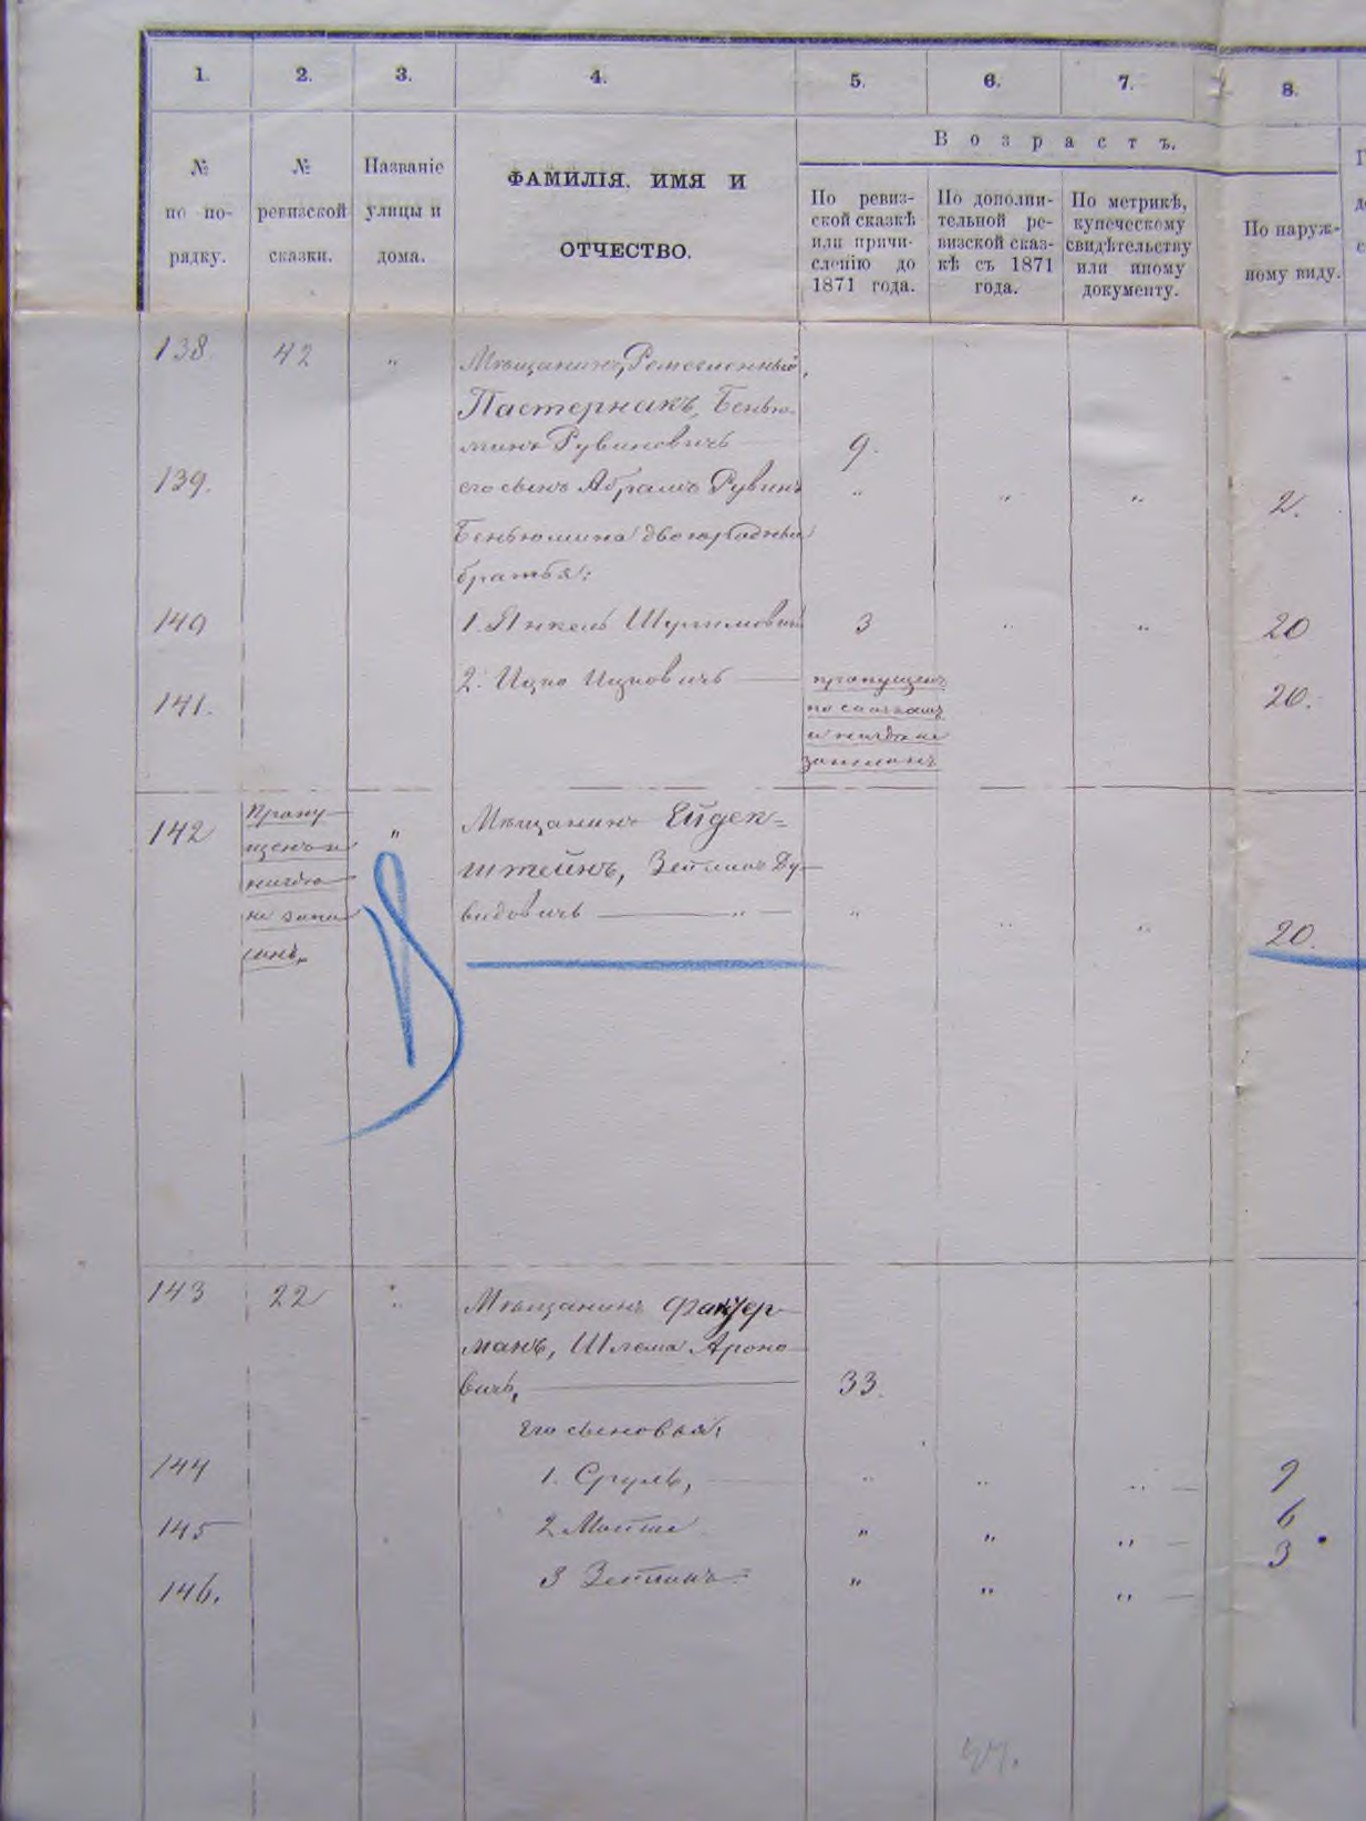 1. 2. 3. 4. 5. 6. 7. 8.
№
по по-
рядку.
№
ревизской
сказки.
Названіе
улицы и
дома.
ФАМИЛІЯ, ИМЯ И
ОТЧЕСТВО.
Возрастъ.
По ревиз-
ской сказкѣ
или причи-
сленію до
1871 года.
По дополни-
тельной ре-
визской сказ-
кѣ съ 1871
года.
По метрикѣ,
купеческому
свидѣтельству
или иному
документу.
По наруж-
ному виду.
138 42 " Мѣщанинъ, Ремесленный,
Пастернакъ, Бенью-
минъ Рувиновичъ — 9.
139. его сынъ Абрамъ Рувинъ " " " 2.
Беньюмина двоюродные
братья:
140 1. Янкель Шулимовичъ 3 " " 20
141. 2. Ицко Ицковичъ — 20.
пропущенъ
по сказкамъ
и нигдѣ не
записанъ
142 " Мѣщанинъ Ейдек=
штейнъ, Зейликъ Ду-
видовичъ — " — " " " 20.
Пропу-
щенъ и
нигдѣ
не запи
санъ.
143 22 " Мѣщанинъ Фактер-
манъ, Шлема Ароно-
вичъ, — 33.
Его сыновья:
144 1. Сруль, — " " " — 9
145 2 Мойше " " " — 6
146. 3 Зейликъ = " " " — 3